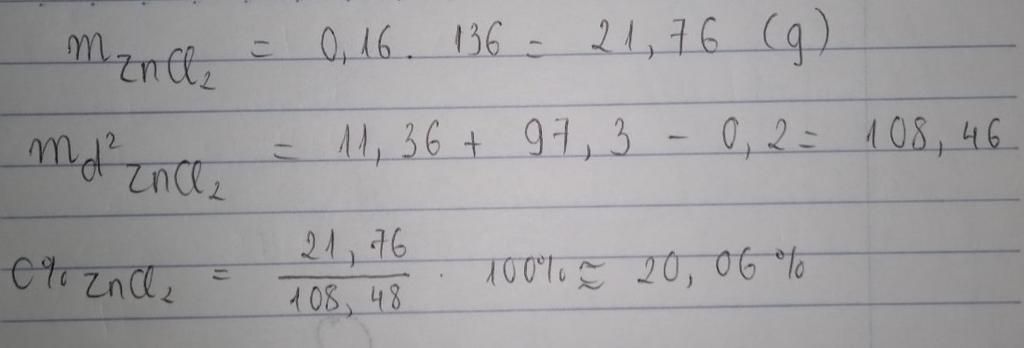 m ZnCl₂ = 0,16. 136 = 21,76 (g)
m d² ZnCl₂ = 11,36 + 97,3 - 0,2 = 108,46
C% ZnCl₂ = 21,76 / 108,48 . 100% ≈ 20,06%